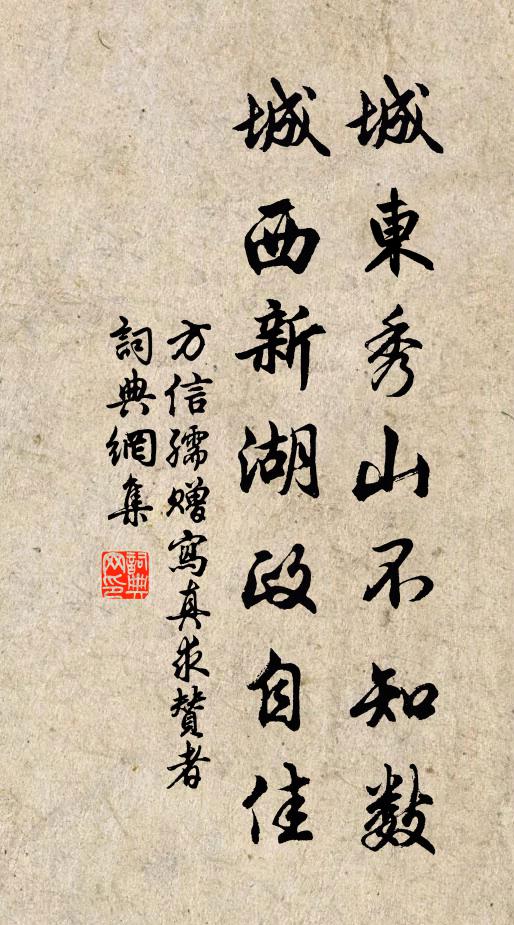 城東秀山不知數
城西新湖政自佳
方信孺贈寫真求贊者
詞典網集
詞典網印